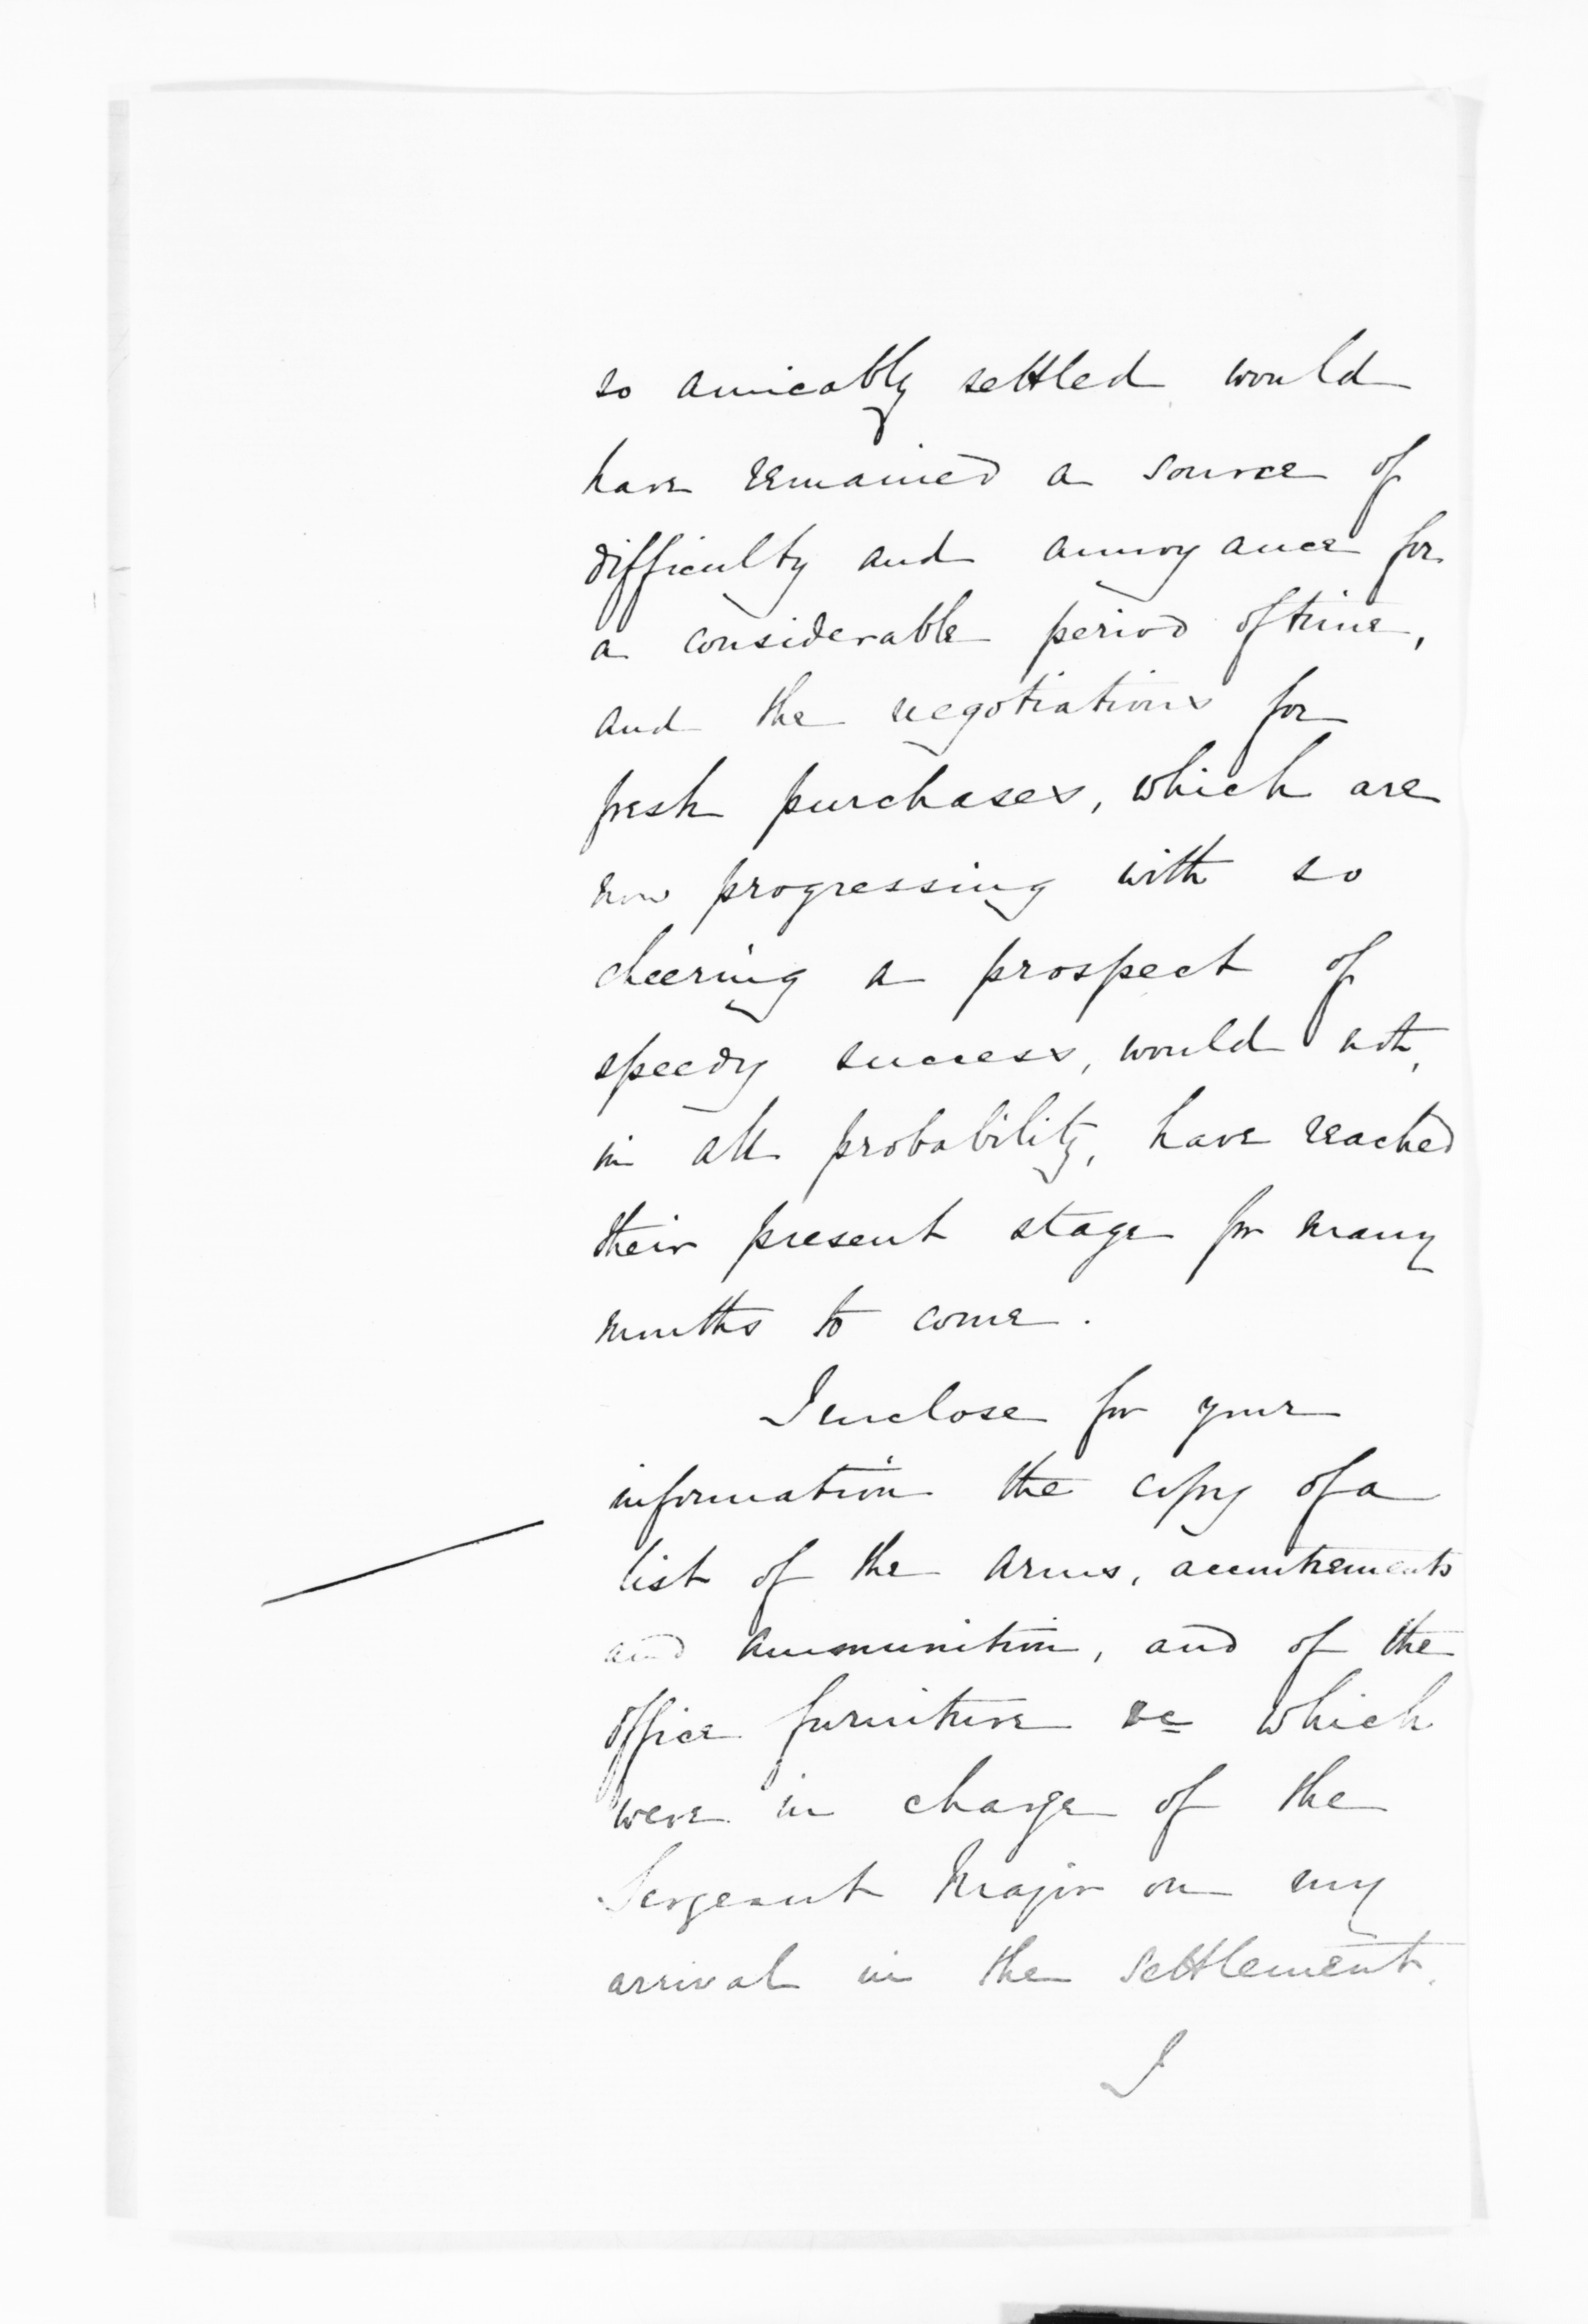 so amicably settled would
have remained a source of
difficulty and annoyance for
a considerable period of time,
and the negotiations for
fresh purchases, which are
now progressing with so
cheering a prospect of
speedy success, would not,
in all probability, have reached
their present stage for many
months to come.
I enclose for your
information the copy of a
list of the arms, accoutrements
and ammunition, and of the
office furniture &c which
were in charge of the
Sergeant Major on my
arrival in the Settlement.
I